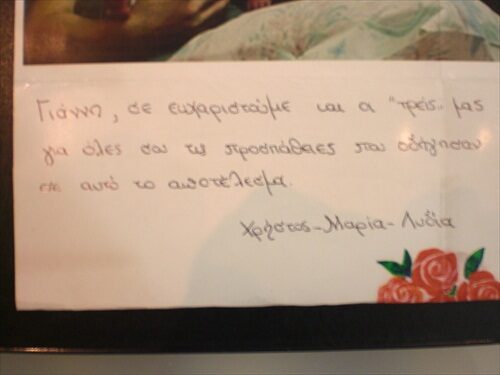 Γιάννη, σε ευχαριστούμε και οι "τρείς" μας
για όλες σου τις προσπάθειες που οδήγησαν
σε αυτό το αποτέλεσμα.
Χρήστος-Μαρία-Λυδία